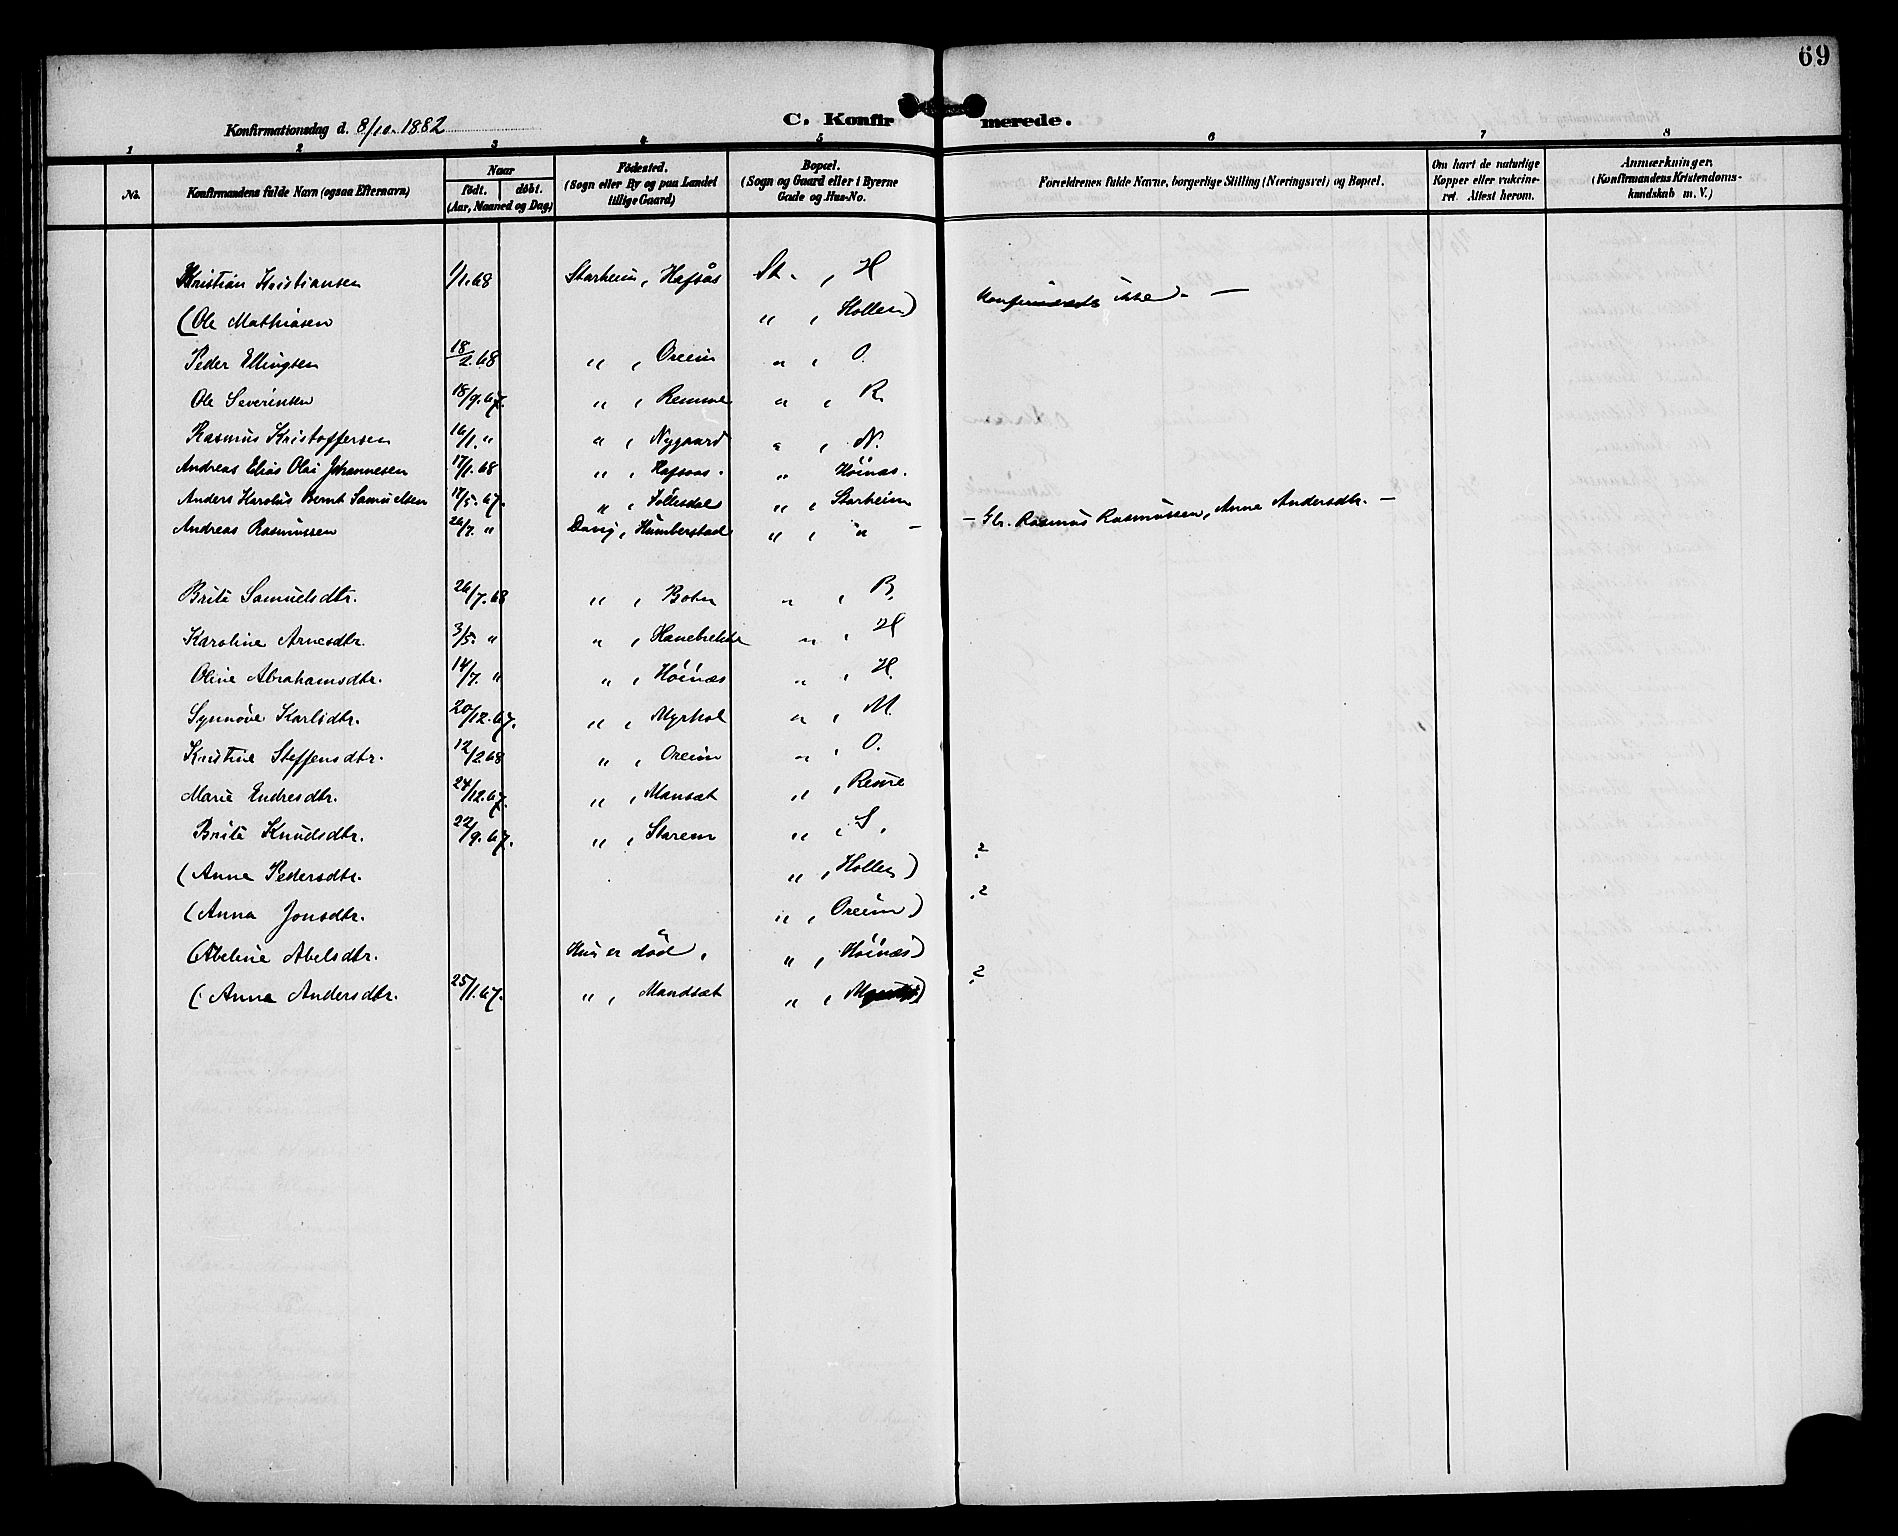 69
Konfirmationsdag d. 8/10. 1882
C. Konfirmerede.
1 2 3 4 5 6 7 8
No.
Konfirmandens fulde Navn (ogsaa Efternavn)
Naar
født. døbt.
(Aar, Maaned og Dag)
Fødested.
(Sogn eller By og paa Landet
tillige Gaard)
Bopæl.
(Sogn og Gaard eller i Byerne
Gade og Hus-No.
Forældrenes fulde Navne, borgerlige Stilling (Næringsvei) og Bopæl.
Om havt de naturlige
Kopper eller vakcine-
ret. Attest herom.
Anmærkninger.
(Konfirmandens Kristendoms-
kundskab m. V.)
Kristian Kristiansen 1/1.68 Starheim, Hafsås St. , H
(Ole Mathiasen " , Hollen) Konfirmeredes ikke. —
Peder Ellingsen 18/2.68 " , Oreim " , O.
Ole Severinsen 18/9.67. " , Remme " , R.
Rasmus Kristoffersen 16/1. " " , Nygaard " , N.
Andreas Elias Olai Johannesen 17/1.68 " , Hafsaas. " Höinæs.
Anders Karolus Bernt Samuelsen 17/5.67. " , Follesdal " , Starheim
Andreas Rasmussen 26/7. " Davig, Humberstad " , " — — Gbr. Rasmus Rasmussen, Anna Andersdtr. —
Brite Samuelsdtr. 26/7.68 " , Botn " , B.
Karoline Arnesdtr. 3/5. " " , Hanebrekke " , H
Oline Abrahamsdtr. 14/7. " " , Höinæs " , H.
Synnöve Karlsdtr. 20/12.67. " , Myrhol " , M.
Kristine Steffensdtr. 12/2 68 " , Oreim " , O.
Marie Endresdtr. 24/12.67. " , Mansæt " , Reme
Brite Knudsdtr. 22/9.67. " , Starem " , S.
(Anne Pedersdtr. " , Hollen) ?
(Anna Jonsdtr. " , Oreim) ?
(Abeline Abelsdtr. Hun er död , " , Höinæs)
(Anna Andersdtr. 25/1.67. " , Mandsæt " , ) ?